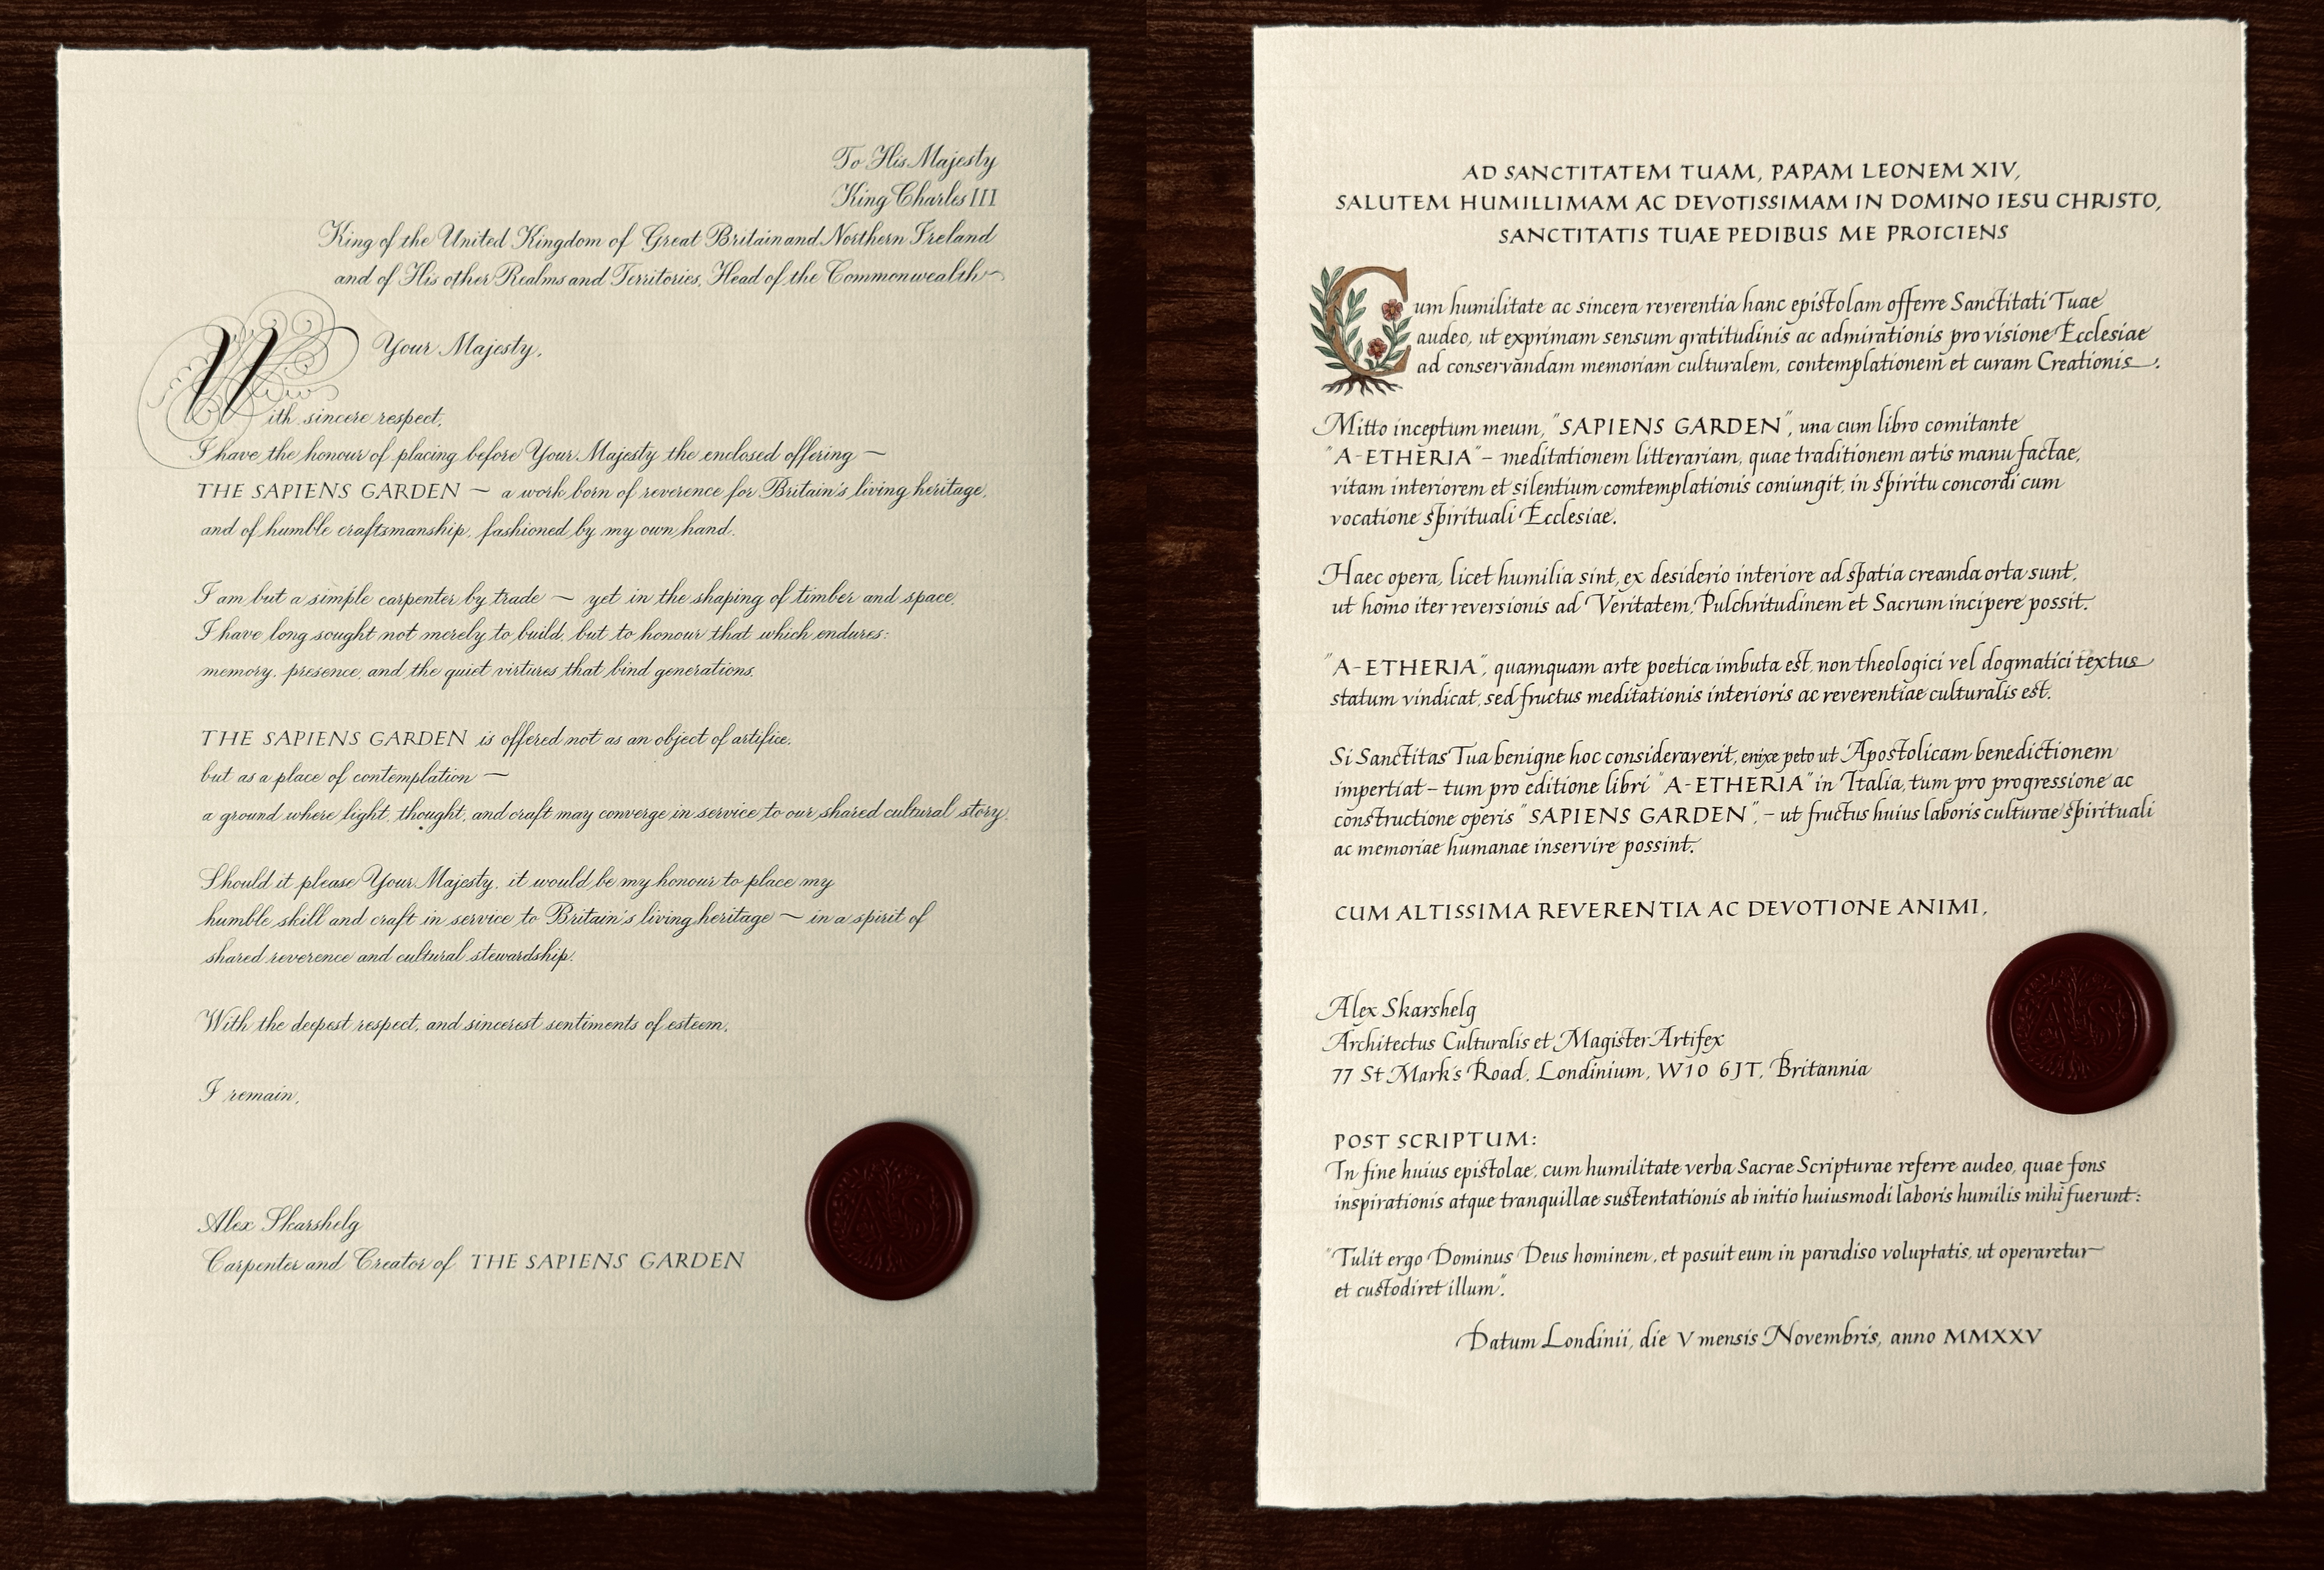 To His Majesty
King Charles III
King of the United Kingdom of Great Britain and Northern Ireland
and of His other Realms and Territories, Head of the Commonwealth
Your Majesty,
With sincere respect,
I have the honour of placing before Your Majesty the enclosed offering —
THE SAPIENS GARDEN — a work born of reverence for Britain's living heritage,
and of humble craftsmanship, fashioned by my own hand.
I am but a simple carpenter by trade — yet in the shaping of timber and space,
I have long sought not merely to build, but to honour that which endures:
memory, presence, and the quiet virtues that bind generations.
THE SAPIENS GARDEN is offered not as an object of artifice,
but as a place of contemplation —
a ground where light, thought, and craft may converge in service to our shared cultural story.
Should it please Your Majesty, it would be my honour to place my
humble skill and craft in service to Britain's living heritage — in a spirit of
shared reverence and cultural stewardship.
With the deepest respect, and sincerest sentiments of esteem,
I remain,
Alex Skarshelg
Carpenter and Creator of THE SAPIENS GARDEN
AD SANCTITATEM TUAM, PAPAM LEONEM XIV,
SALUTEM HUMILLIMAM AC DEVOTISSIMAM IN DOMINO IESU CHRISTO,
SANCTITATIS TUAE PEDIBUS ME PROICIENS
Cum humilitate ac sincera reverentia hanc epistolam offerre Sanctitati Tuae
audeo, ut exprimam sensum gratitudinis ac admirationis pro visione Ecclesiae
ad conservandam memoriam culturalem, contemplationem et curam Creationis.
Mitto inceptum meum, "SAPIENS GARDEN", una cum libro comitante
"A-ETHERIA" – meditationem litterariam, quae traditionem artis manu factae,
vitam interiorem et silentium comtemplationis coniungit, in spiritu concordi cum
vocatione spirituali Ecclesiae.
Haec opera, licet humilia sint, ex desiderio interiore ad spatia creanda orta sunt,
ut homo iter reversionis ad Veritatem, Pulchritudinem et Sacrum incipere possit.
"A-ETHERIA", quamquam arte poetica imbuta est, non theologici vel dogmatici textus
statum vindicat, sed fructus meditationis interioris ac reverentiae culturalis est.
Si Sanctitas Tua benigne hoc consideraverit, enixe peto ut Apostolicam benedictionem
impertiat – tum pro editione libri "A-ETHERIA" in Italia, tum pro progressione ac
constructione operis "SAPIENS GARDEN", – ut fructus huius laboris culturae spirituali
ac memoriae humanae inservire possint.
CUM ALTISSIMA REVERENTIA AC DEVOTIONE ANIMI,
Alex Skarshelg
Architectus Culturalis et Magister Artifex
77 St Mark's Road, Londinium, W10 6JT, Britannia
POST SCRIPTUM:
In fine huius epistolae, cum humilitate verba Sacrae Scripturae referre audeo, quae fons
inspirationis atque tranquillae sustentationis ab initio huiusmodi laboris humilis mihi fuerunt:
"Tulit ergo Dominus Deus hominem, et posuit eum in paradiso voluptatis, ut operaretur
et custodiret illum".
Datum Londinii, die V mensis Novembris, anno MMXXV